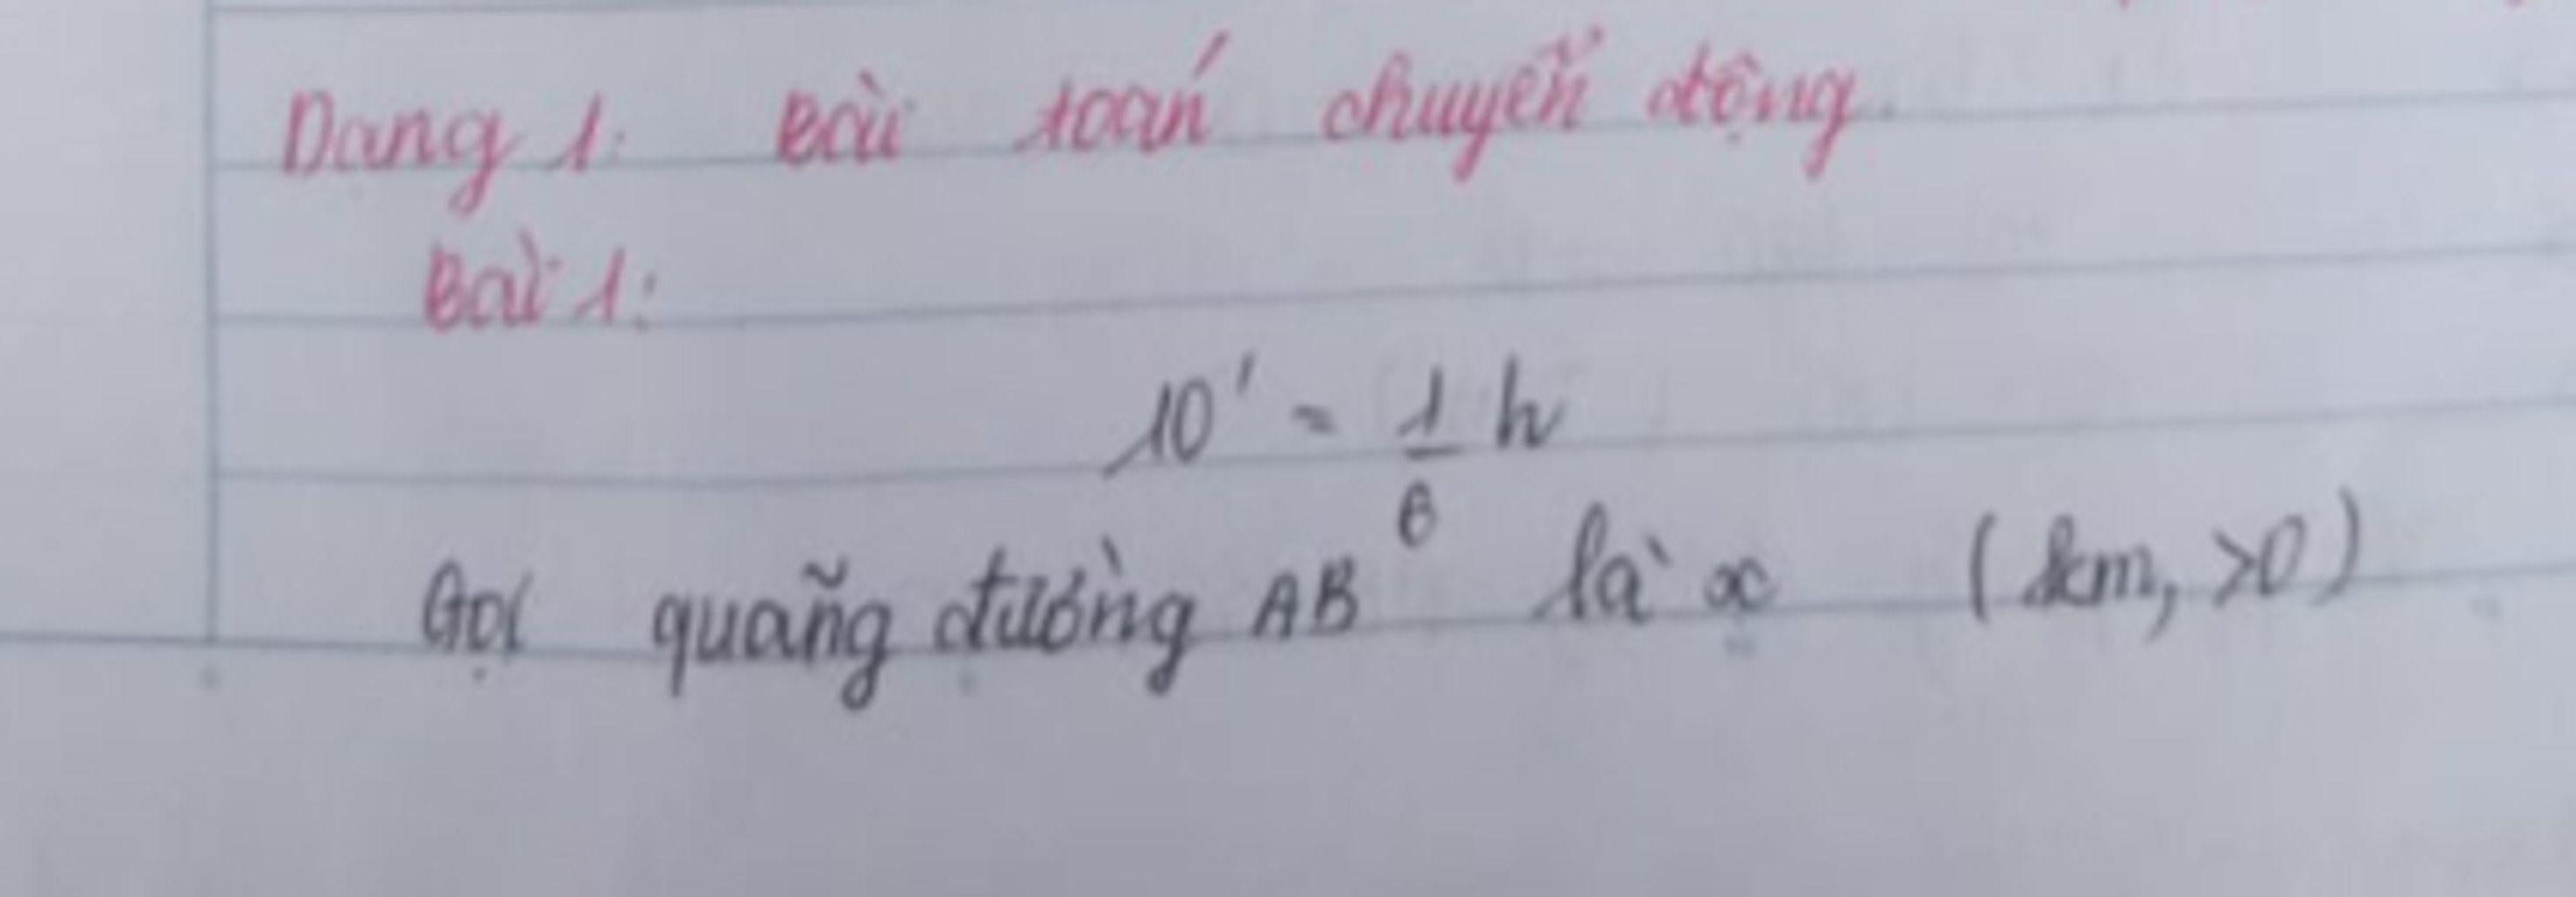 Dạng 1: Bài toán chuyển động.
Bài 1:
10' = 1/6 h
Gọi quãng đường AB là x (km, >0)